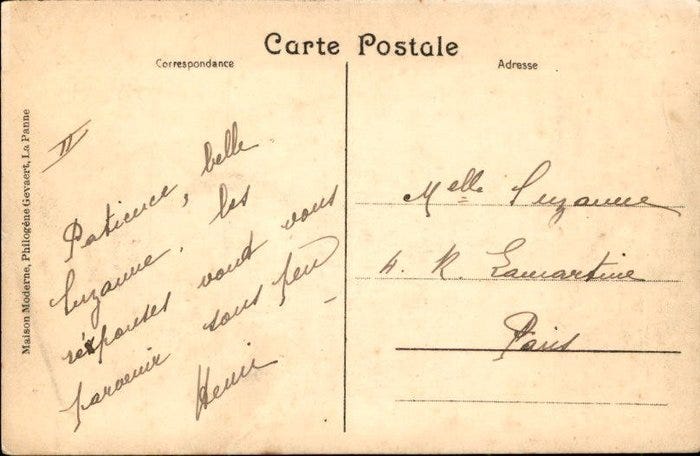 Carte Postale
Correspondance
Adresse
Maison Moderne, Philogène Gevaert, La Panne
II
Patience, belle
Suzanne, les
réponses vont vous
parvenir sous peu
Henri
Melle Suzanne
4. R. Lamartine
Paris